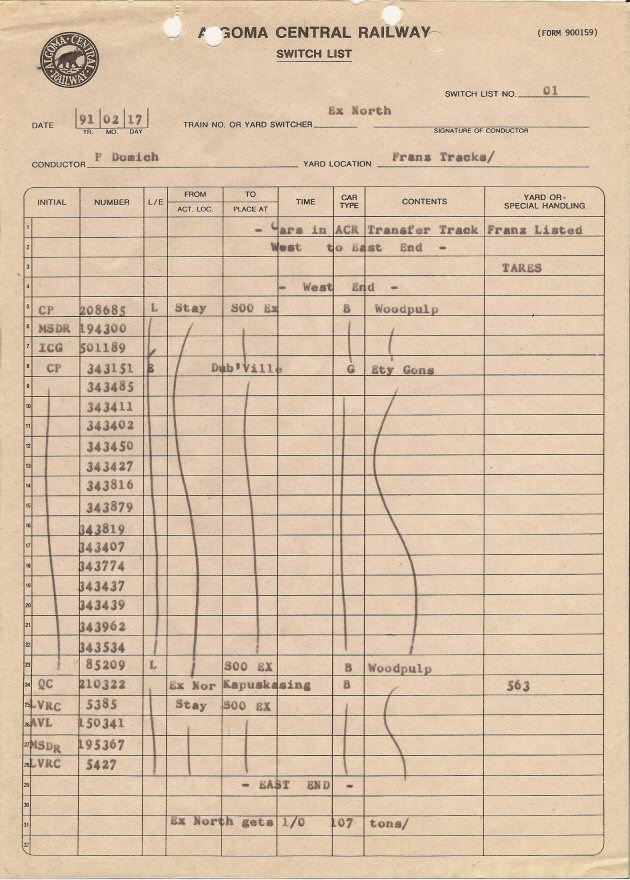 ALGOMA CENTRAL RAILWAY
(FORM 900159)
SWITCH LIST
ALGOMA · CENTRAL · RAILWAY ·
SWITCH LIST NO. 01
DATE 91 02 17 TRAIN NO. OR YARD SWITCHER Ex North
YR. MO. DAY SIGNATURE OF CONDUCTOR
CONDUCTOR P Domich YARD LOCATION Franz Tracks/
INITIAL NUMBER L/E FROM ACT. LOC. TO PLACE AT TIME CAR TYPE CONTENTS YARD OR- SPECIAL HANDLING
1 - Cars in ACR Transfer Track Franz Listed
2 West to East End -
3 TARES
4 - West End -
5 CP 208685 L Stay SOO Ex B Woodpulp
6 MSDR 194300
7 ICG 501189
8 CP 343151 E Dub'Ville G Ety Gons
9 343485
10 343411
11 343402
12 343450
13 343427
14 343816
15 343879
16 343819
17 343407
18 343774
19 343437
20 343439
21 343962
22 343534
23 85209 L SOO EX B Woodpulp
24 QC 210322 Ex Nor Kapuskasing B 563
25 LVRC 5385 Stay SOO EX
26 AVL 150341
27 MSDR 195367
28 LVRC 5427
29 - EAST END -
30
31 Ex North gets 1/0 107 tons/
32